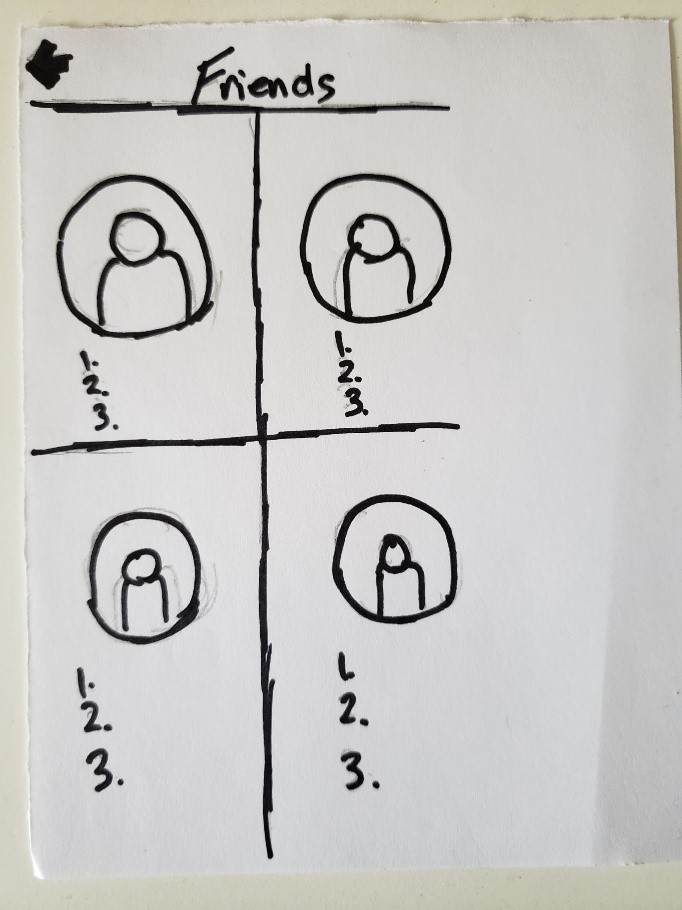 Friends
1.
2.
3.
1.
2.
3.
1.
2.
3.
1.
2.
3.